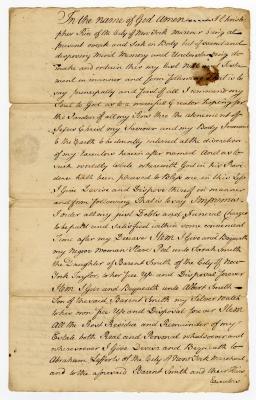 In the name of God Amen I Chris
pher of the City of New York being at
present weak and Sick in Body but of sound and
disposing Mind Memory and Understanding do
make and ordain this my last Will and Testa
ment in manner and form following that is to
say principally and first of all I recommend my
Soul to God as to a merciful Creator hoping for
the Pardon of all my Sins thro the atonement of
Jesus Christ my Saviour and my Body I commit
to the Earth to be decently interred at the discretion
of my Executors herein after named And as to
such worldly Estate wherewith God in his Provi
dence hath been pleased to Bless me in this Life
I Give Devise and Dispose thereof in manner
and form following That is to say Imprimis
I order all my just Debts and Funeral Charges
to be paid and satisfied within some convenient
Time after my Decease Item I Give and Bequeath
my Negroe Woman Slave unto Sarah Smith
the Daughter of Barent Smith of the City of New
York Taylor to her own Use and Disposal forever
Item I Give and Bequeath unto Albert Smith
Son of the said Barent Smith my Silver Watch
to his own Use and Disposal forever Item
All the Rest Residue and Remainder of my
Estate both Real and Personal whatsoever and
wheresoever I Give Devise and Bequeath to
Abraham Lefferts of the City of New York Merchant
and to the aforesaid Barent Smith and their Heirs
Executors